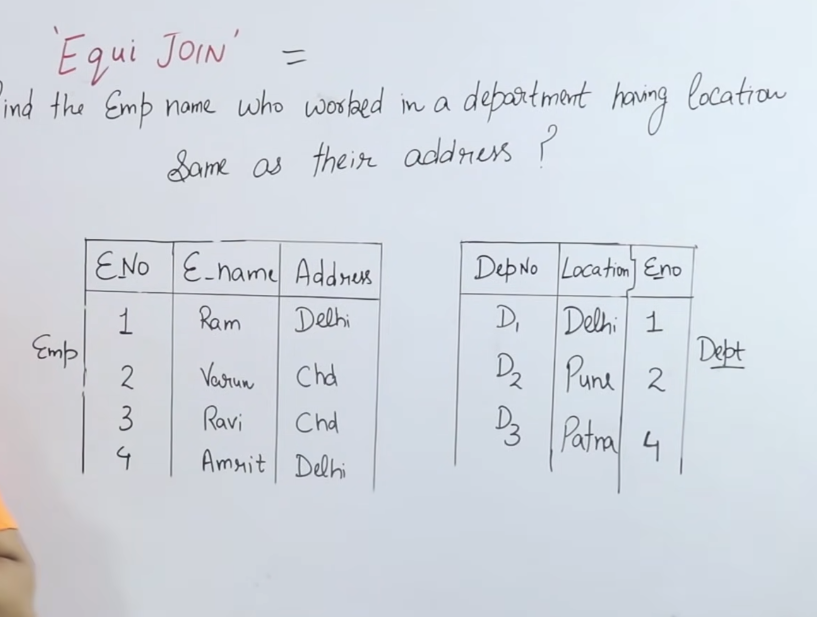 'Equi JOIN' =
ind the Emp name who worked in a department having location
Same as their address ?
Emp
E.No E_name Address
1 Ram Delhi
2 Varun Chd
3 Ravi Chd
4 Amrit Delhi
DepNo Location Eno
D1 Delhi 1
D2 Pune 2
D3 Patna 4
Dept